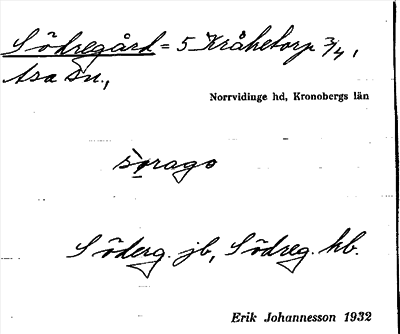 Södregård = 5 Kråketorp 3/4,
Asa sn.,
Norrvidinge hd, Kronobergs län
sǫ̀rago
Söderg. jb, Södreg. hb.
Erik Johannesson 1932